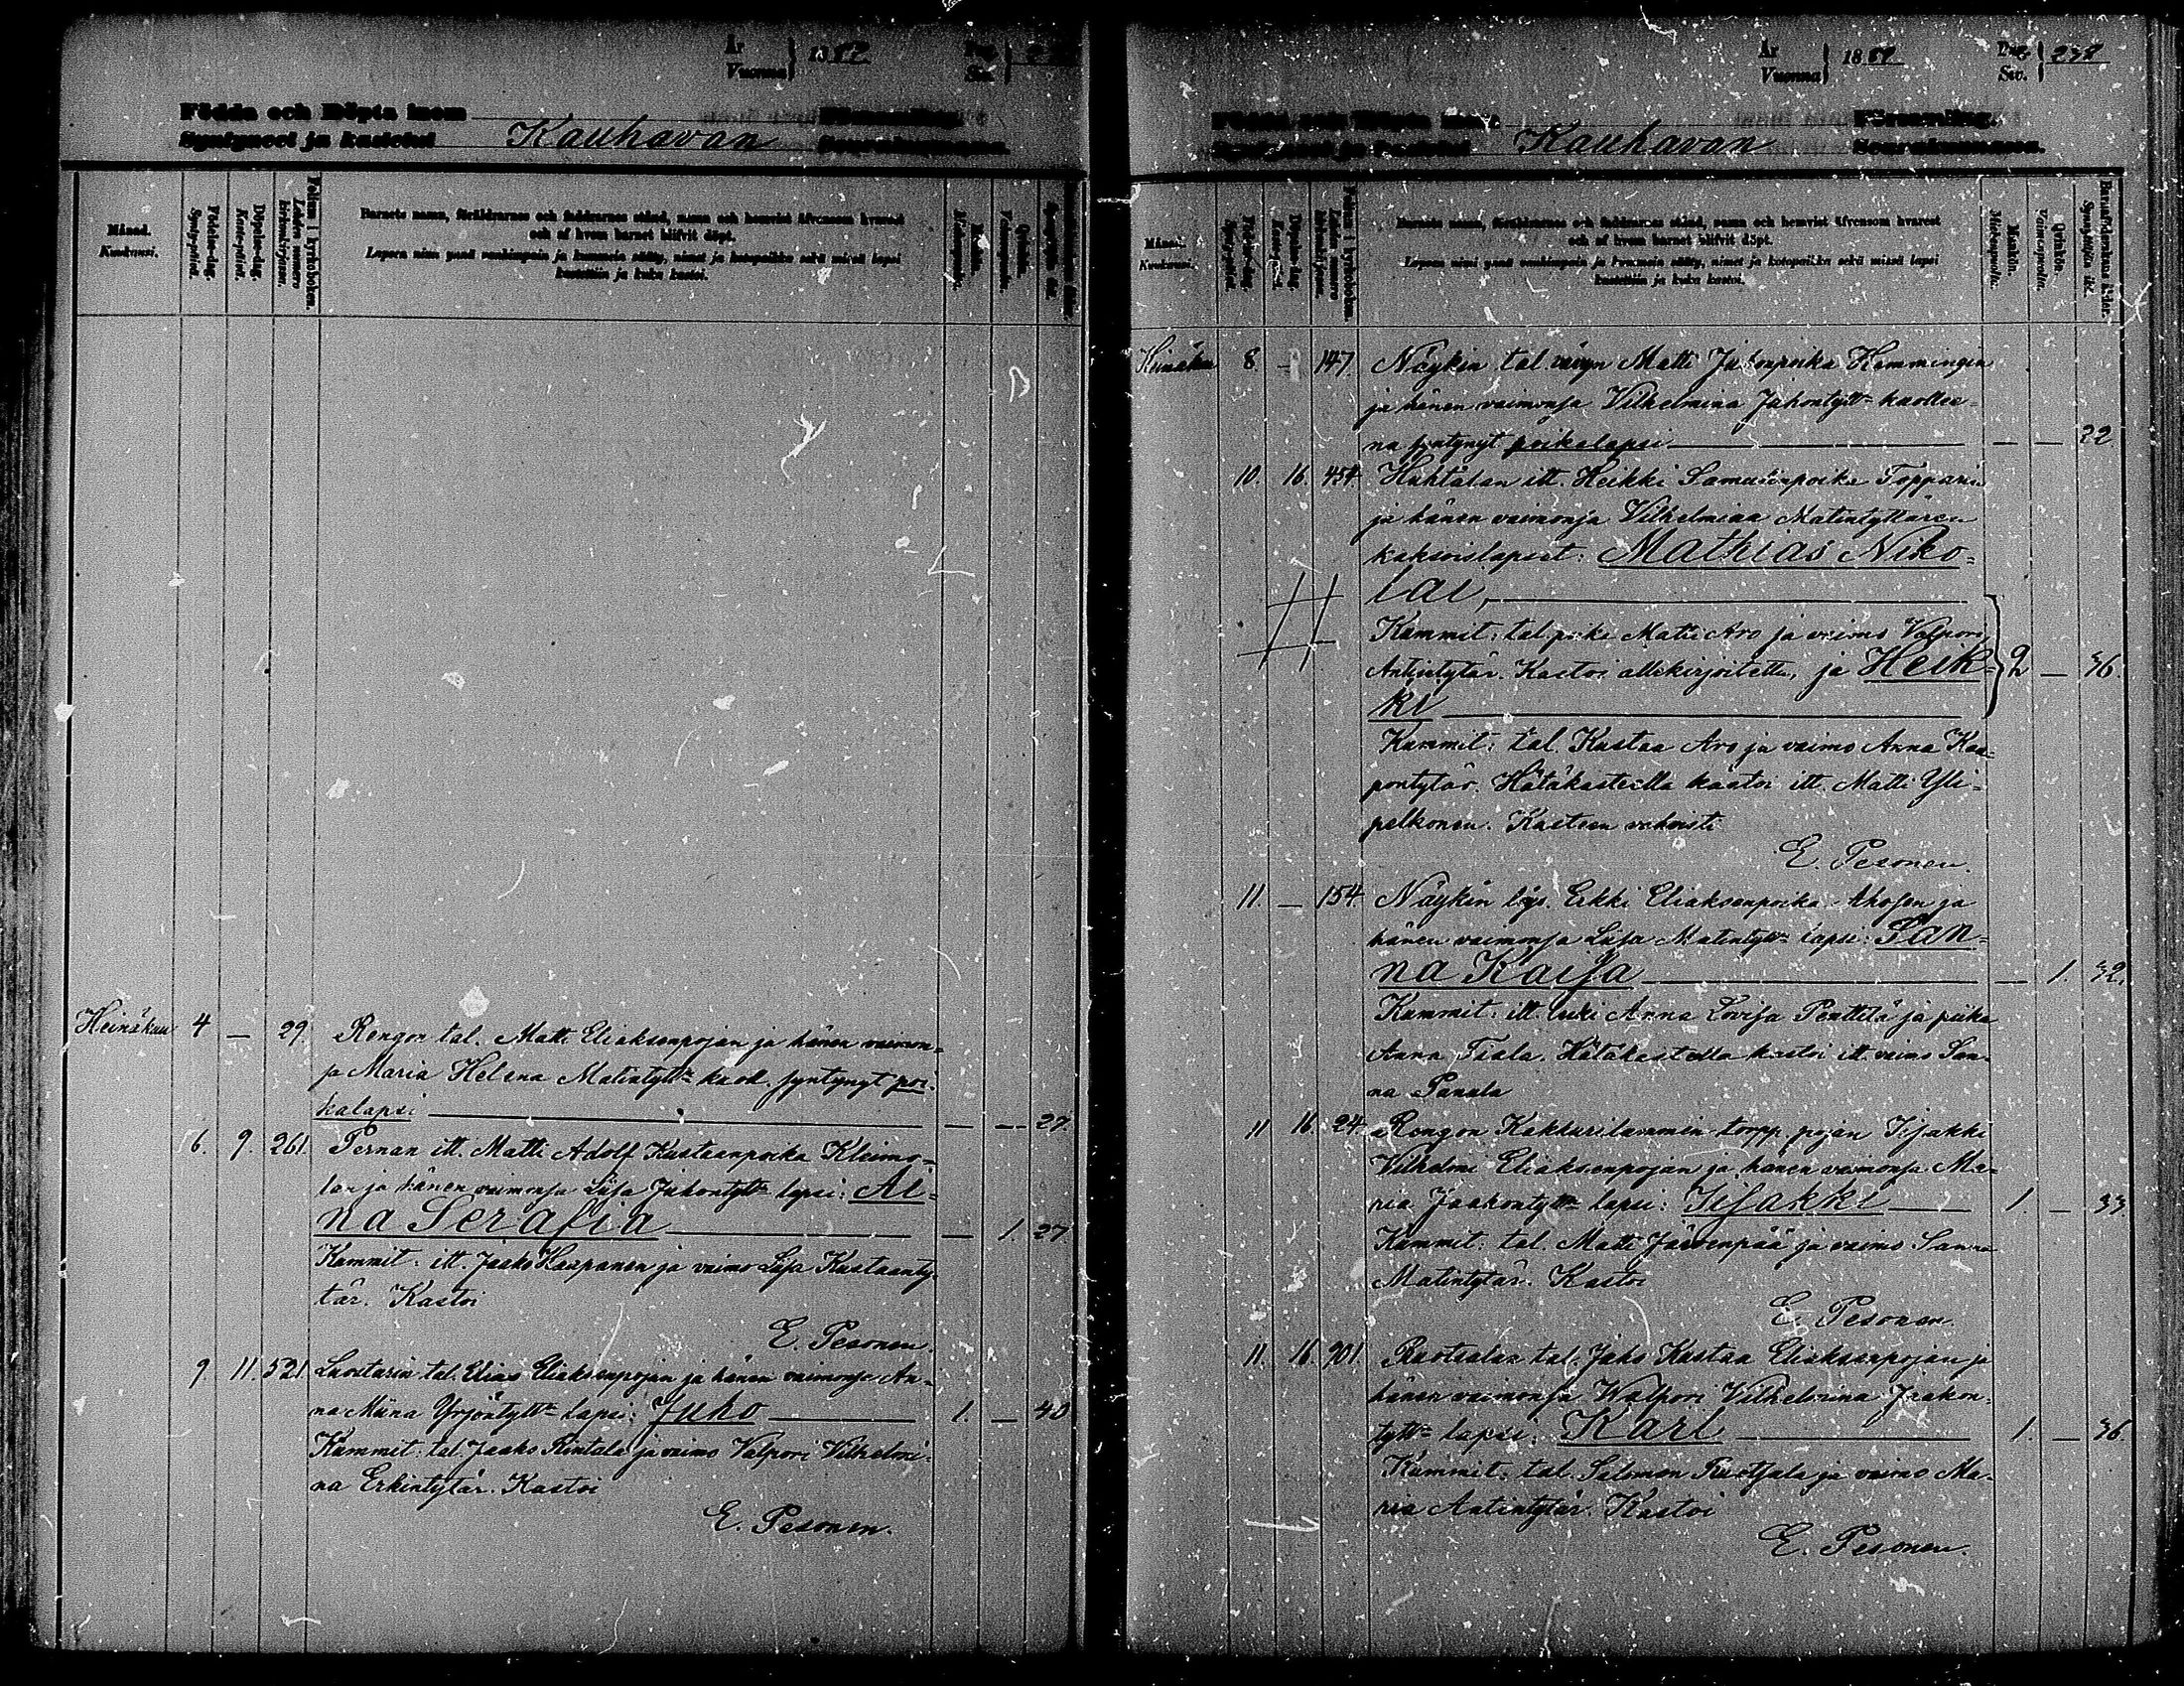 År
Vuonna } 1887.
Pag.
Siv.
Födda och Döpta inom
Syntyneet ja kastetut Kauhavan
Församling.
Seurakunnassa.
Månad.
Kuukausi.
Födelse-dag.
Synty-päivä.
Döpelse-dag.
Kaste-päivä.
Folium i kyrkoboken.
Lehden numero kirkonkirjassa.
Barnets namn, föräldrarnes och faddrarnes stånd, namn och hemvist äfvensom hvarest
och af hvem barnet blifvit döpt.
Lapsen nimi ynnä vanhempain ja kummein sääty, nimet ja kotopaikka sekä missä lapsi
kastettiin ja kuka kastoi.
Mankön.
Miehenpuolia.
Qvinkön.
Vaimonpuolia.
Heinäkuu 4 — 29. Rengon tal. Matti Eliaksenpojan ja hänen vaimon-
sa Maria Helena Matintytt:n kuoll. syntynyt poi-
kalapsi — — 27.
6. 9. 261. Pernan itt. Matti Adolf Kustaanpoika Kleimo-
lan ja hänen vaimonsa Liisa Juhontytt:n lapsi: Al-
na Serafia — 1. 27
Kummit: itt. Jaako Haapanen ja vaimo Liisa Kustaanty-
tär. Kastoi
E. Pesonen.
9 11. 521. Luostarin tal. Elias Eliaksenpojan ja hänen vaimonsa An-
na Miina Yrjöntytt:n lapsi: Juho 1. — 40
Kummit: tal. Jaako Rintala ja vaimo Valpori Vilhelmi-
na Erkintytär. Kastoi
E. Pesonen.
År
Vuonna } 1887
Pag.
Siv. } 238
Födda och Döpta inom
Kauhavan
Församling.
Seurakunnassa.
Månad.
Kuukausi.
Födelse-dag.
Synty-päivä.
Döpelse-dag.
Folium i kyrkoboken.
Barnets namn, föräldrarnes och faddrarnes stånd, namn och hemvist äfvensom hvarest
och af hvem barnet blifvit döpt.
Lapsen nimi ynnä vanhempain ja kummein sääty, nimet ja kotopaikka sekä missä lapsi
kastettiin ja kuka kastoi.
Mankön.
Miehenpuolia.
Qvinkön.
Vaimonpuolia.
Barnaföderskans ålder.
Synnyttäjän ikä.
Heinäkuu 8. — 147. Näykin tal. vävyn Matti Jakonpoika Hemmingin
ja hänen vaimonsa Vilhelmina Juhontytt:n kuollee-
na syntynyt poikalapsi — — 22
10. 16. 454 Huhtalan itt. Heikki Samuelinpoika Topparin
ja hänen vaimonsa Vilhelmiina Matintyttären
kaksoislapset: Mathias Niko-
lai,
Kummit: tal. poika Matti Aro ja vaimo Valpori
Antintytär. Kastoi allekirjoitettu, ja Heik- } 2 — 36.
ki
Kummit: tal. Kustaa Aro ja vaimo Anna Kaa-
pontytär. Hätäkasteella kastoi itt. Matti Yli-
pelkonen. Kasteen vahvisti
E. Pesonen.
11. — 154. Näykin Erkki Eliaksenpoika Ahosen ja
hänen vaimonsa Liisa Matintytt:n lapsi: San-
na Kaisa — 1. 32.
Kummit: itt. leski Anna Lovisa Penttilä ja piika
Anna Tiala. Hätäkasteella kastoi itt. vaimo San-
na Panula
11 16. 24. Rengon Kakkurilammin torpp. pojan Iisakki
Vilhelmi Eliaksenpojan ja hänen vaimonsa Ma-
ria Jaakontytt:n lapsi: Iisakki 1. — 33.
Kummit: tal. Matti Järvenpää ja vaimo Sanna
Matintytär. Kastoi
E. Pesonen.
11. 16. 901. Ruotsalan tal. Jaho Kustaa Eliaksenpojan ja
hänen vaimonsa Walpori Vilhelmiina Jaakon-
tytt:n lapsi: Karl 1. — 36.
Kummit: tal. Salomon Ruotsala ja vaimo Ma-
ria Antintytär. Kastoi
E. Pesonen.